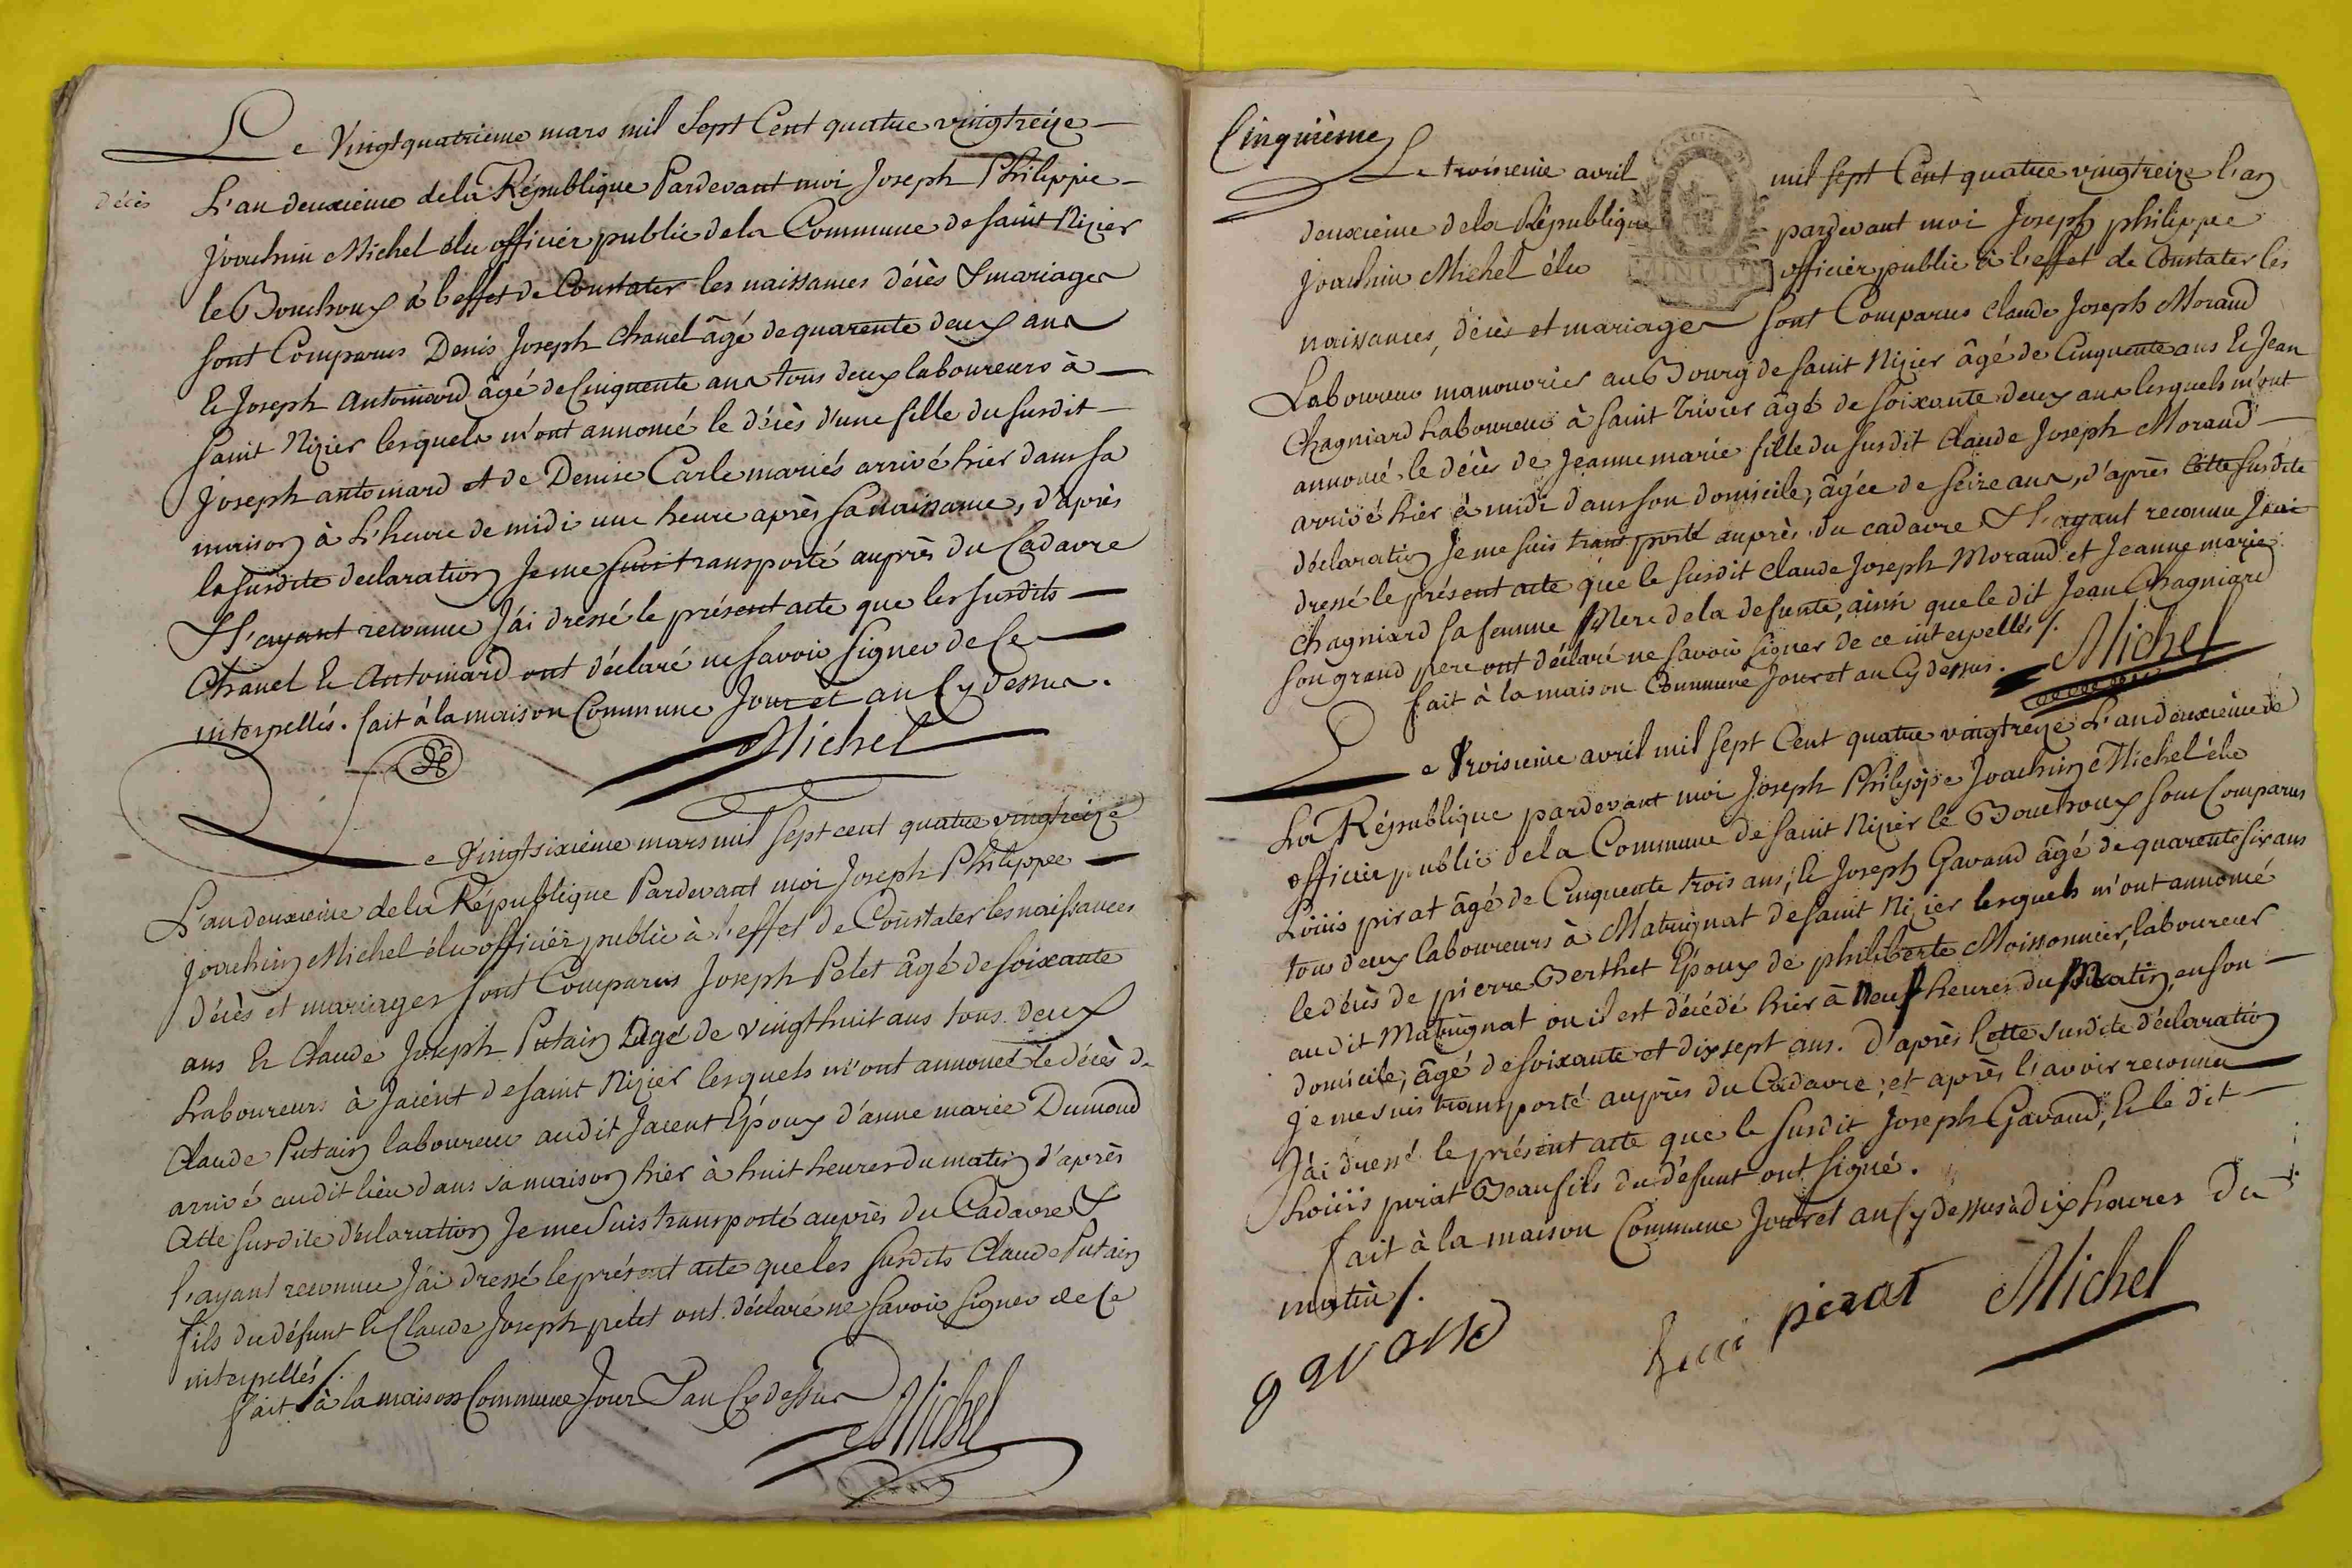 Le Vingtquatrieme mars mil Sept Cent quatre vingtreize
décès
L'an deuxieme dela République Pardevant moi Joseph Philippe
Joachim Michel élu officier public dela Commune de saint Nizier
le Bouchoux à l'effet de Constater les naissances décès & mariages
sont Comparus Denis Joseph Chanel âgé de quarente deux ans
& Joseph Antoinard âgé de Cinquente ans tous deux laboureurs à
saint Nizier lesquels m'ont annoncé le décès d'une fille du susdit
Joseph antoinard et de Denise Carle mariés arrivé hier dans sa
maison à L'heure de midi une heure après sa naissance, d'après
la susdite declaration Je me suis transporté auprès du Cadavre
& L'ayant reconnue J'ai dressé le présent acte que les susdits
Chanel & Antoinard ont déclaré ne savoir signer de Ce
interpellés. fait à la maison Commune Jour et an Cy dessus.
Michel
Le Vingtsixieme mars mil sept cent quatre vingtreize
L'an deuxieme dela République Pardevant moi Joseph Philippe
Joachim Michel élu officier public à l'effet de Constater les naissances
décès et mariages sont Comparus Joseph Pelet âgé de soixante
ans & Claude Joseph Putain agé de vingthuit ans tous deux
Laboureurs à Jaient de saint Nizier lesquels m'ont annoncé le décès de
Claude Putain laboureur audit Jacent Epoux d'anne marie Dumond
arrivé audit lieu dans sa maison hier à huit heures du matin d'après
Cette susdite déclaration Je me suis transporté auprès du Cadavre &
l'ayant reconnue J'ai dressé le présent acte que les susdits Claude Putain
fils du défunt & Claude Joseph pelet ont déclaré ne savoir signer de Ce
interpellés /.
fait à la maison Commune Jour & an Cy dessus
Michel
Cinquième
Le troisieme avril mil sept Cent quatre vingtreize l'an
deuxieme dela République pardevant moi Joseph philippe
Joachim Michel élu officier public à l'effét de Constater les
naissances, décès et mariages sont Comparus Claude Joseph Morand
Laboureur manouvrier au Bourg de saint Nizier âgé de Cinquente ans & Jean
Chagniard Laboureur à saint Trivier âgé de soixante deux ans lesquels m'ont
annoncé le décès de Jeanne marie fille du susdit Claude Joseph Morand
arrivé hier à midi dans son domicile, âgée de seize ans, d'après Cette susdite
déclaration Je me suis transporté auprès du cadavre & l'ayant reconnu J'ai
dressé le présent acte que le susdit Claude Joseph Morand et Jeanne marie
Chagniard sa femme Mere dela defunte, ainsi que le dit Jean Chagniard
son grand pere ont déclaré ne savoir signer de ce interpellés /.
fait à la maison Commune Jour et an Cy dessus.
Michel
Le Troisieme avril mil sept Cent quatre vingtreize L'an deuxieme de
La République pardevant moi Joseph Philippe Joachim Michel élu
officier public dela Commune de saint Nizier le Bouchoux sont Comparus
Loüis pirat âgé de Cinquente trois ans, & Joseph Gavand âgé de quarente six ans
tous deux laboureurs à Matrignat de saint Nizier lesquels m'ont annoncé
le décès de pierre Berthet Epoux de philiberte Moissonnier, laboureur
au dit Matrignat ou il est décédé hier à Neuf heures du Matin, en son
domicile, âgé de soixante et dix sept ans. D'après Cette susdite déclaration
Je me suis transporté auprès du Cadavre, et après l'avoir reconnu
J'ai dressé le présent acte que le susdit Joseph Gavand, & le dit
Loüis pirat Beaufils du défunt ont signé.
fait à la maison Commune Jour et an Cy dessus à dix heures du
matin /.
gavand pirat Michel